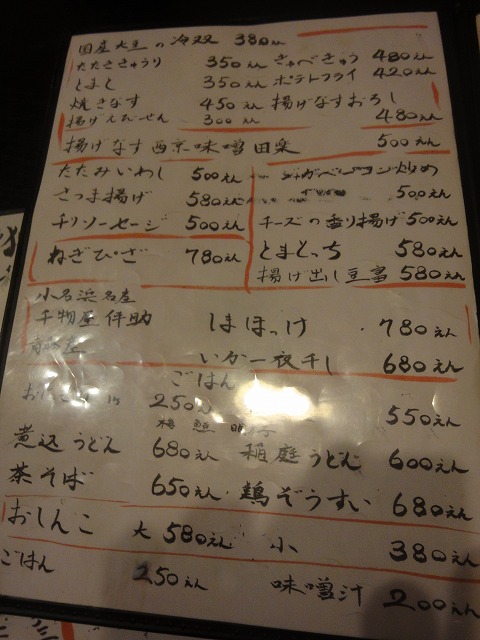 国産大豆の冷奴 380えん
たたききゅうり 350えん きゃべきゅう 480えん
とまと 350えん ポテトフライ 420えん
焼きなす 450えん 揚げなすおろし
揚げえびせん 300えん 480えん
揚げなす西京味噌田楽 500えん
たたみいわし 500えん じゃがベーコン炒め
さつま揚げ 580えん 500えん
チリソーセージ 500えん チーズの香り揚げ 500えん
ねぎぴざ 780えん とまとっち 580えん
揚げ出し豆富 580えん
小名浜名産
干物屋伴助 しまほっけ 780えん
いか一夜干し 680えん
ごはん
250 550えん
梅 鮭
煮込うどん 680えん 稲庭うどん 600えん
茶そば 650えん 鶏ぞうすい 680えん
おしんこ 大 580えん 小 380えん
ごはん 250えん 味噌汁 200えん